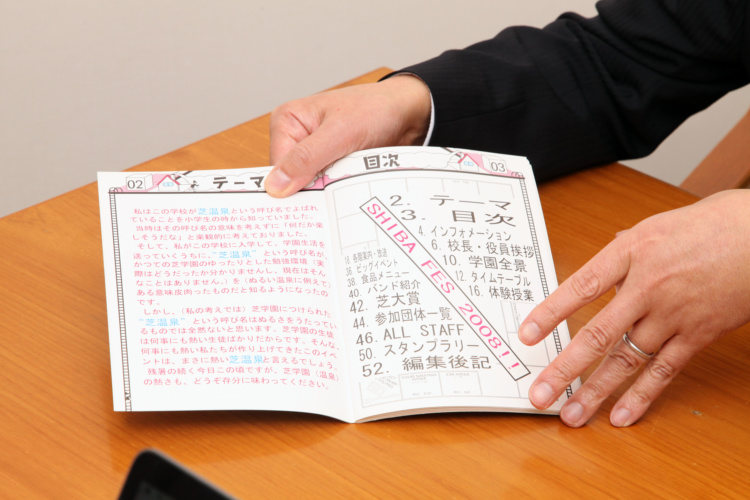 02
テーマ
私はこの学校が芝温泉という呼び名でよばれ
ていることを小学生の時から知っていました。
当時はその呼び名の意味を考えずに「何だか楽
しそうだな」と楽観的に考えておりました。
そして、私がこの学校に入学して、学園生活を
送っていくうちに、"芝温泉"という呼び名が、
かつての芝学園のゆったりとした勉強環境（実
際はどうだったか分かりませんし、現在はそん
なことはありません。）を（ぬるい温泉に例えて）
ある意味皮肉ったものだと知るようになったの
です。
しかし、（私の考えでは）芝学園につけられた
"芝温泉"という呼び名はぬるさをうたってい
るものでは全然ないと思います。芝学園の生徒
は何事にも熱い生徒ばかりだからです。そんな、
何事にも熱い私たちが作り上げてきたこのイベ
ントは、まさに熱い芝温泉と言えるでしょう。
残暑の続く今日この頃ですが、芝学園（温泉）
の熱さも、どうぞ存分に味わってください。
目次
03
2. テーマ
3. 目次
4. インフォメーション
6. 校長・役員挨拶
10. 学園全景
12. タイムテーブル
16. 体験授業
SHIBA FES 2008!!
18. 各階案内・放送
36. ビッグイベント
38. 食品メニュー
40. バンド紹介
42. 芝大賞
44. 参加団体一覧
46. ALL STAFF
50. スタンプラリー
52. 編集後記